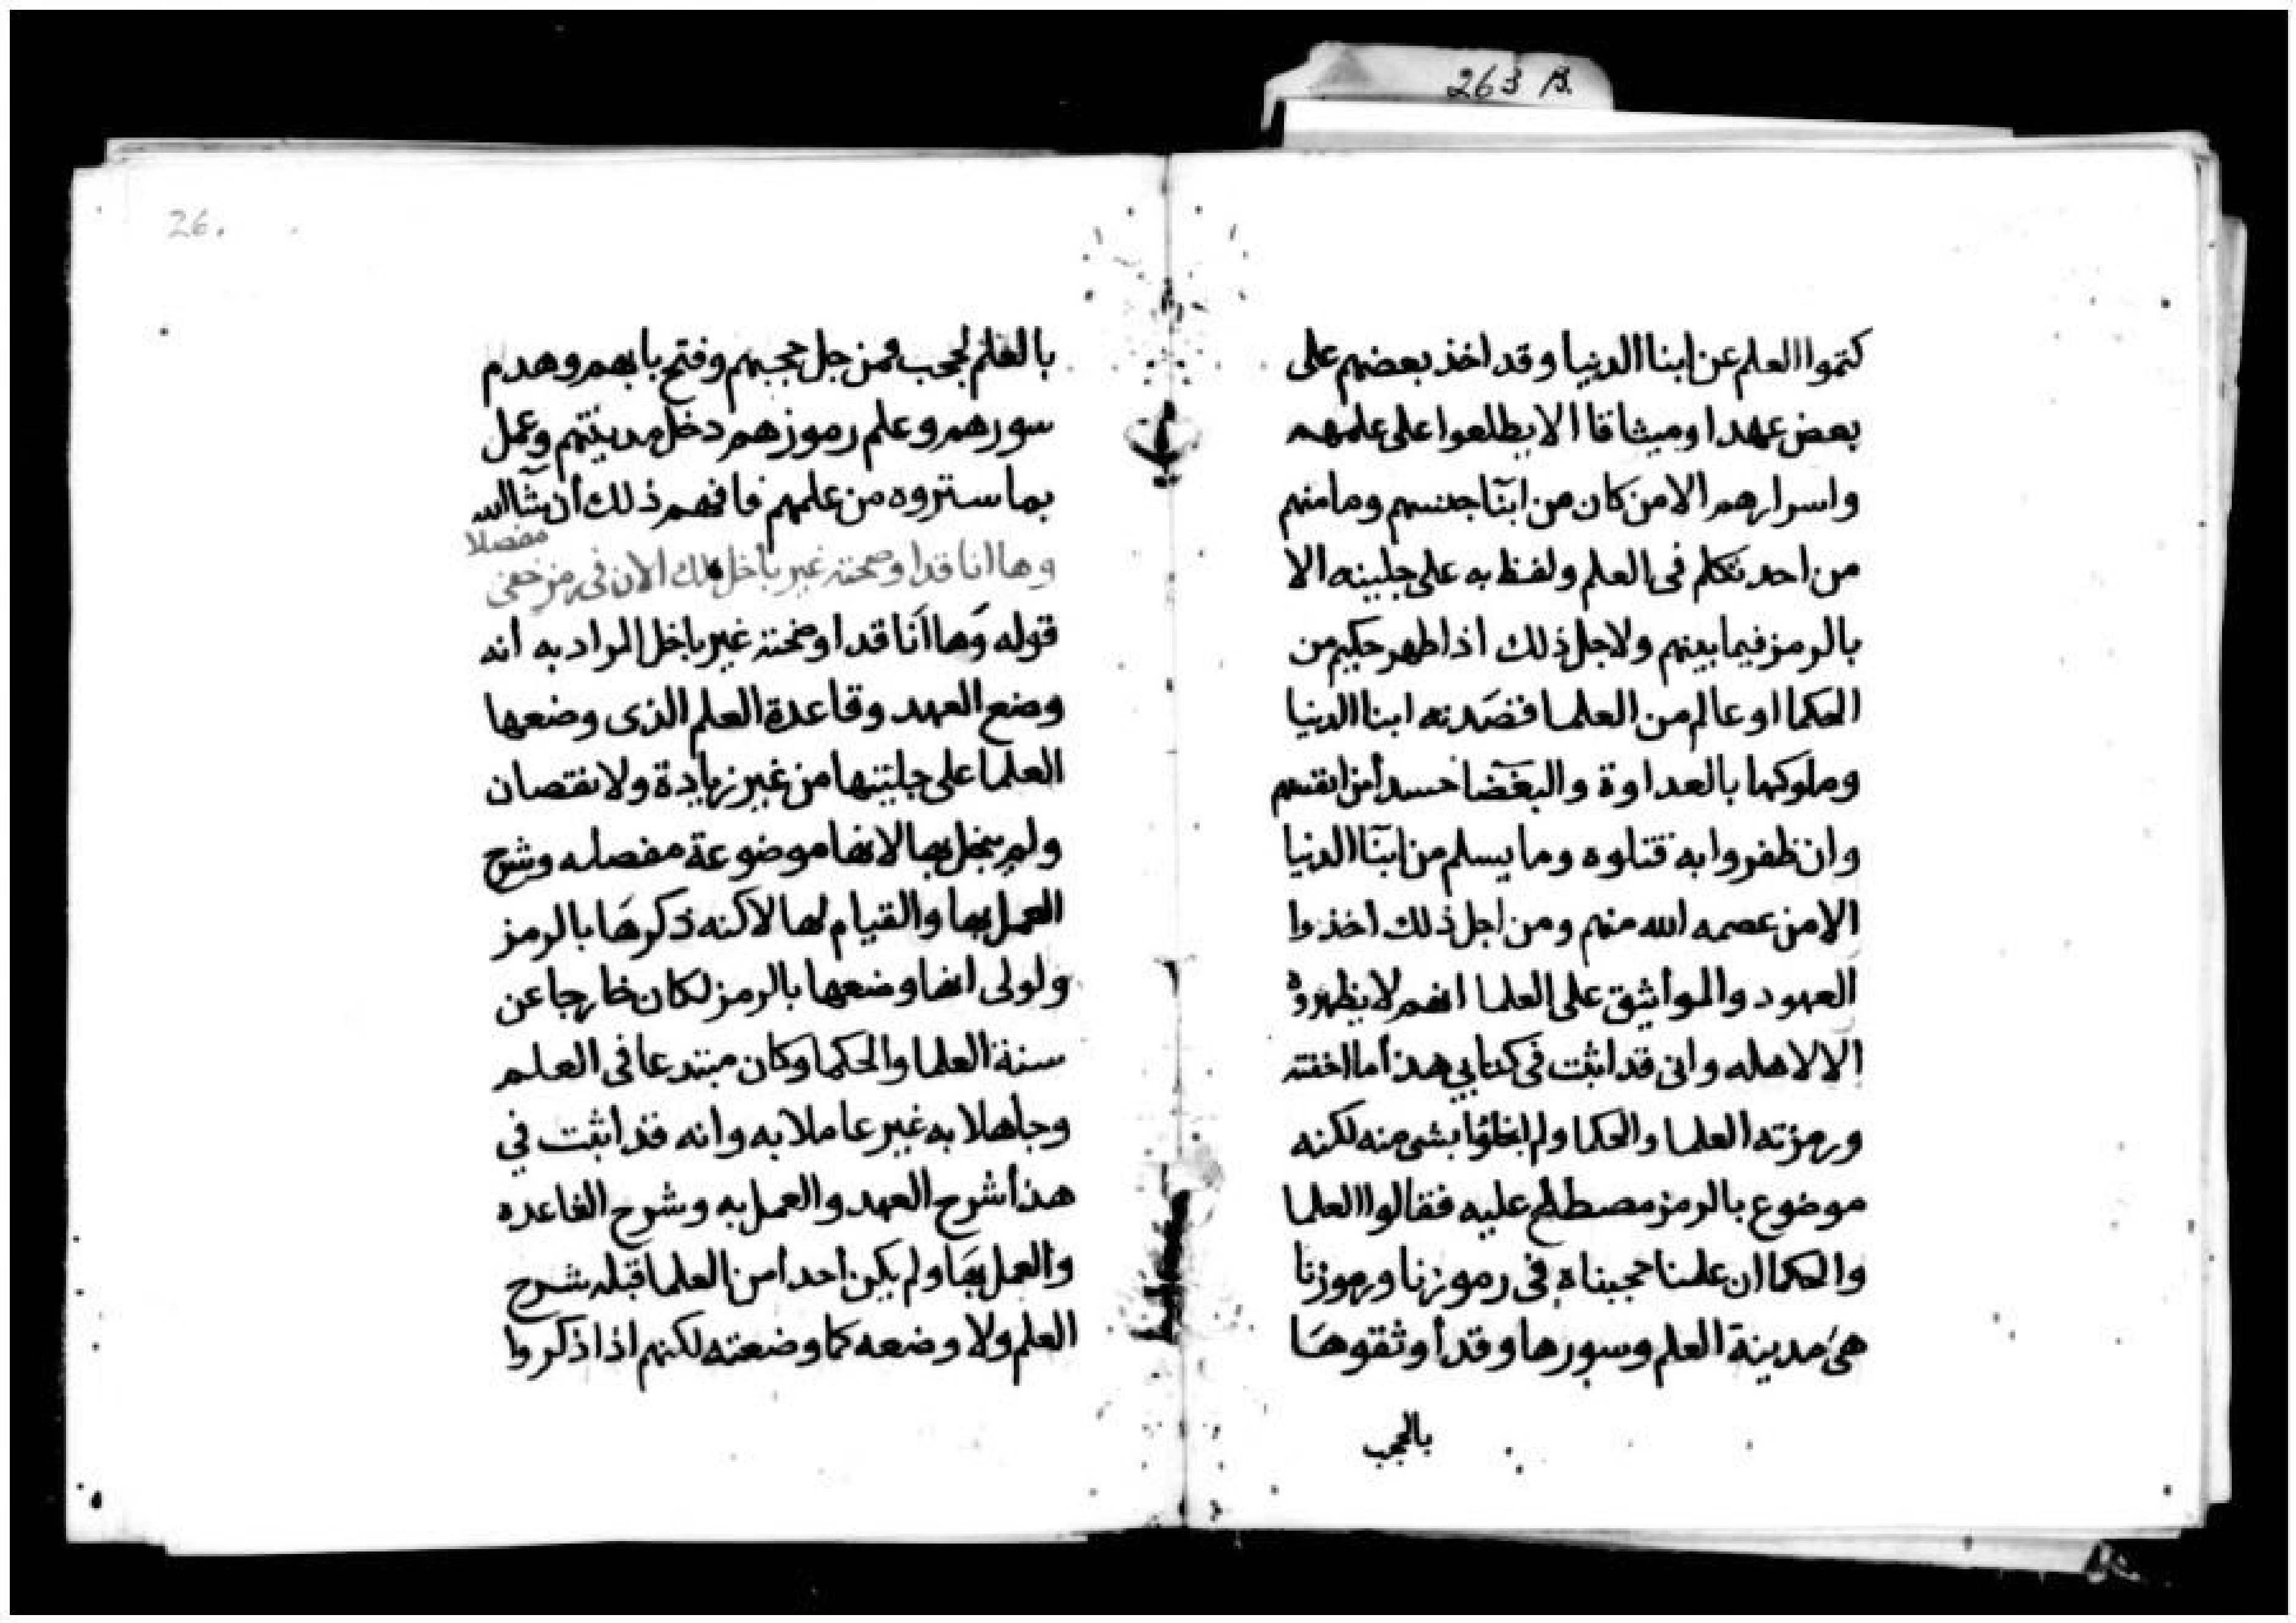 263 B.
كتموا العلم عن ابنا الدنيا وقد اخذ بعضهم على
بعض عهدا وميثاقا الا يطلعوا على علمهم
واسرارهم الا من كان من ابنآ جنسهم وما منهم
من احد تكلم فى العلم ولفظ به على جليته الا
بالرمز فيما بينهم ولاجل ذلك اذا ظهر حكيم من
الحكما او عالم من العلما قصَدته ابنا الدنيا
وملوكها بالعداوة والبغضآ حسدا من انفسهم
وان ظفروا به قتلوه وما يسلم من ابنآ الدنيا
الا من عصمه الله منهم ومن اجل ذلك اخذوا
العهود والمواثيق على العلما انهم لا يظهروه
الا لاهله وانى قد اثبت فى كتابي هذا ما اخفته
ورمزته العلما والحكما ولم ابخلوا بشى منه لكنه
موضوع بالرمز مصطلح عليه فقالوا العلما
والحكما ان علمنا حجبناه فى رموزنا ورموزنا
هى مدينة العلم وسورها وقد أوثقوهَا
بالحجب
26.
بالعلم لحجب فمن حل حجبهم وفتح بابهم وهدم
سورهم وعلم رموزهم دخل مدينتهم وعمل
بما ستروه من علمهم فافهم ذلك أن شآ الله
مفصلا
وها انا قد اوضحته غير باخل لك الان فى رمز خفى
قوله وَها أنا قد اوضحته غير باخل المراد به أنه
وضع العهد وقاعدة العلم الذى وضعها
العلما على جليتها من غير زيادة ولا نقصان
ولم يبخل بها لانها موضوعة مفصله وشرح
العمل بها والقيام لها لاكنه ذكرهَا بالرمز
ولولى انها وضعها بالرمز لكان خارجا عن
سنة العلما والحكما وكان مبتدعا فى العلم
وجاهلا به غير عاملا به وانه قد اثبت في
هذا شرح العهد والعمل به وشرح القاعده
والعمل بهَا ولم يكن أحدا من العلما قبله شرح
العلم ولا وضعه كما وضعته لكنهم اذا ذكروا